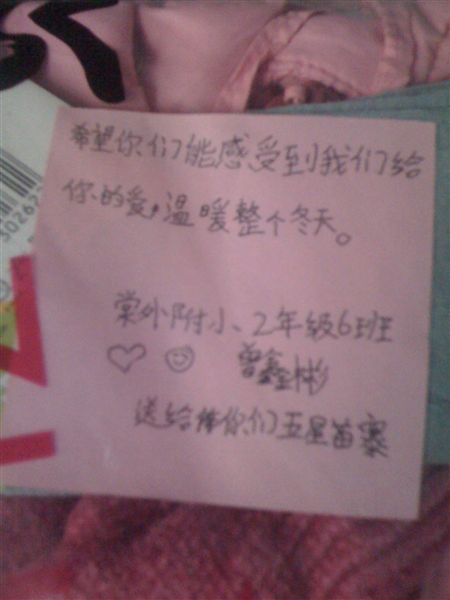 希望你们能感受到我们给
你的爱，温暖整个冬天。
棠外附小、2年级6班
曾鑫彬
送给你们五星苗寨